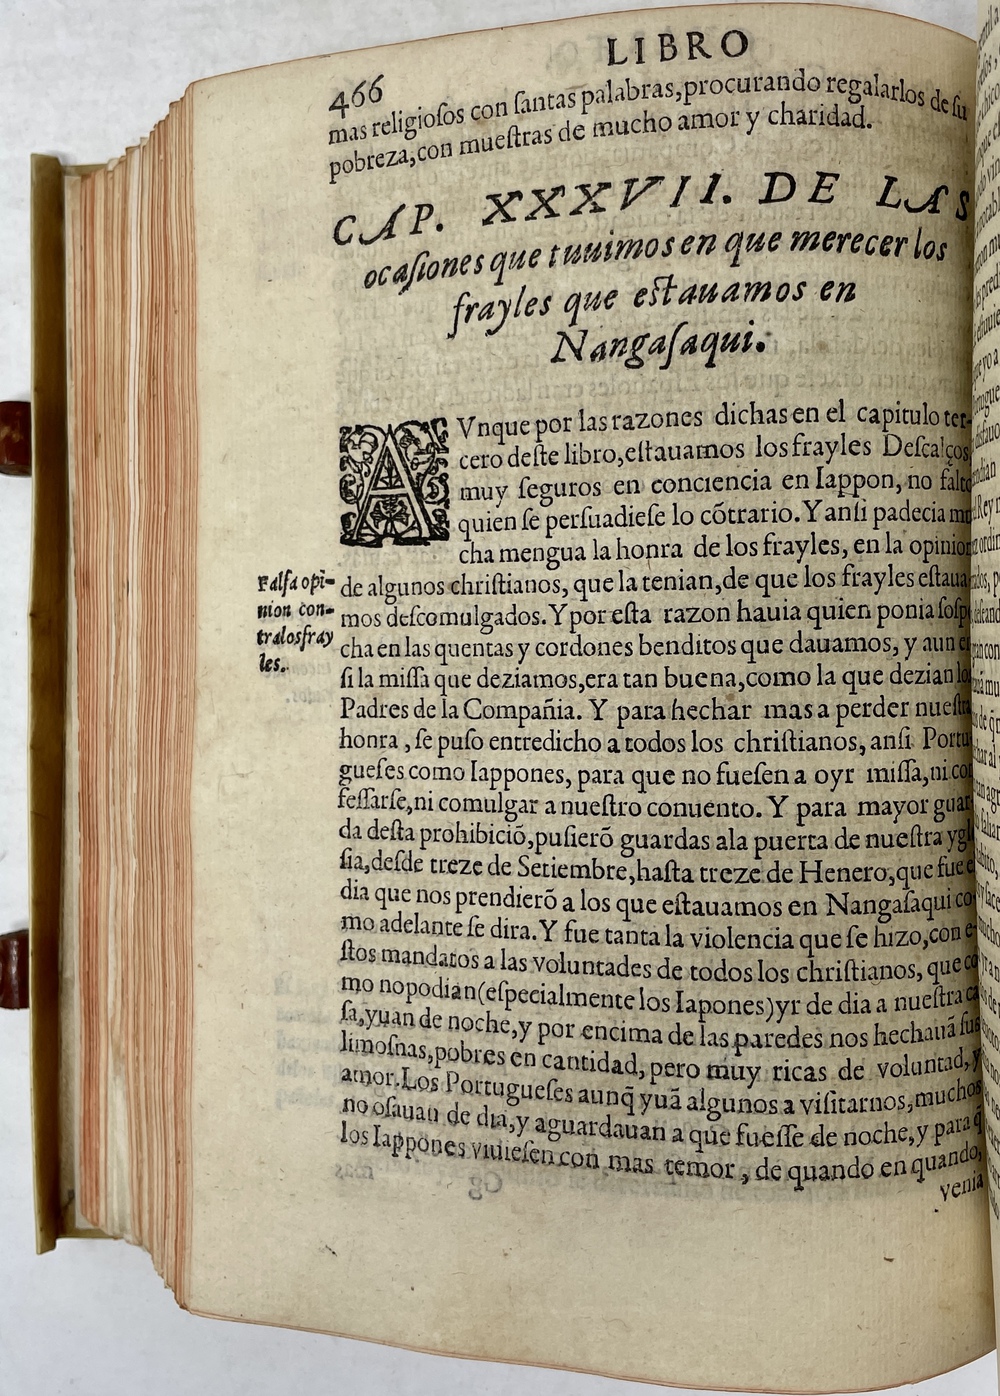 LIBRO
466
mas religioſos con ſantas palabras,procurando regalarlos de ſu
pobreza,con mueſtras de mucho amor y charidad.
CAP. XXXVII. DE LAS
ocaſiones que tuuimos en que merecer los
frayles que eſtauamos en
Nangaſaqui.
AVnque por las razones dichas en el capitulo ter-
cero deſte libro,eſtauamos los frayles Deſcalços
muy ſeguros en conciencia en Iappon, no falto
quien ſe perſuadieſe lo cõtrario. Y anſi padecia mu
cha mengua la honra de los frayles, en la opinion
Falſa opi-
nion con-
tra los fray
les.
de algunos chriſtianos, que la tenian,de que los frayles eſtaua
mos deſcomulgados. Y por eſta razon hauia quien ponia ſoſpe
cha en las quentas y cordones benditos que dauamos, y aun en
ſi la miſſa que deziamos,era tan buena,como la que dezian los
Padres de la Compañia. Y para hechar mas a perder nueſtra
honra , ſe puſo entredicho a todos los chriſtianos, anſi Portu
gueſes como Iappones, para que no fueſen a oyr miſſa,ni con
feſſarſe,ni comulgar a nueſtro conuento. Y para mayor guar
da deſta prohibiciõ,puſierõ guardas ala puerta de nueſtra ygle
ſia,deſde treze de Setiembre,haſta treze de Henero,que fue el
dia que nos prendierõ a los que eſtauamos en Nangaſaqui co-
mo adelante ſe dira. Y fue tanta la violencia que ſe hizo,con e-
ſtos mandatos a las voluntades de todos los chriſtianos, que co
mo no podian(eſpecialmente los Iapones)yr de dia a nueſtra ca
ſa,yuan de noche,y por encima de las paredes nos hechauã ſus
limoſnas,pobres en cantidad, pero muy ricas de voluntad, y
amor.Los Portugueſes aunq̃ yuã algunos a viſitarnos,muchos
no oſauan de dia,y aguardauan a que fueſſe de noche,y para q̃
los Iappones viuieſen con mas temor , de quando en quando,
venia